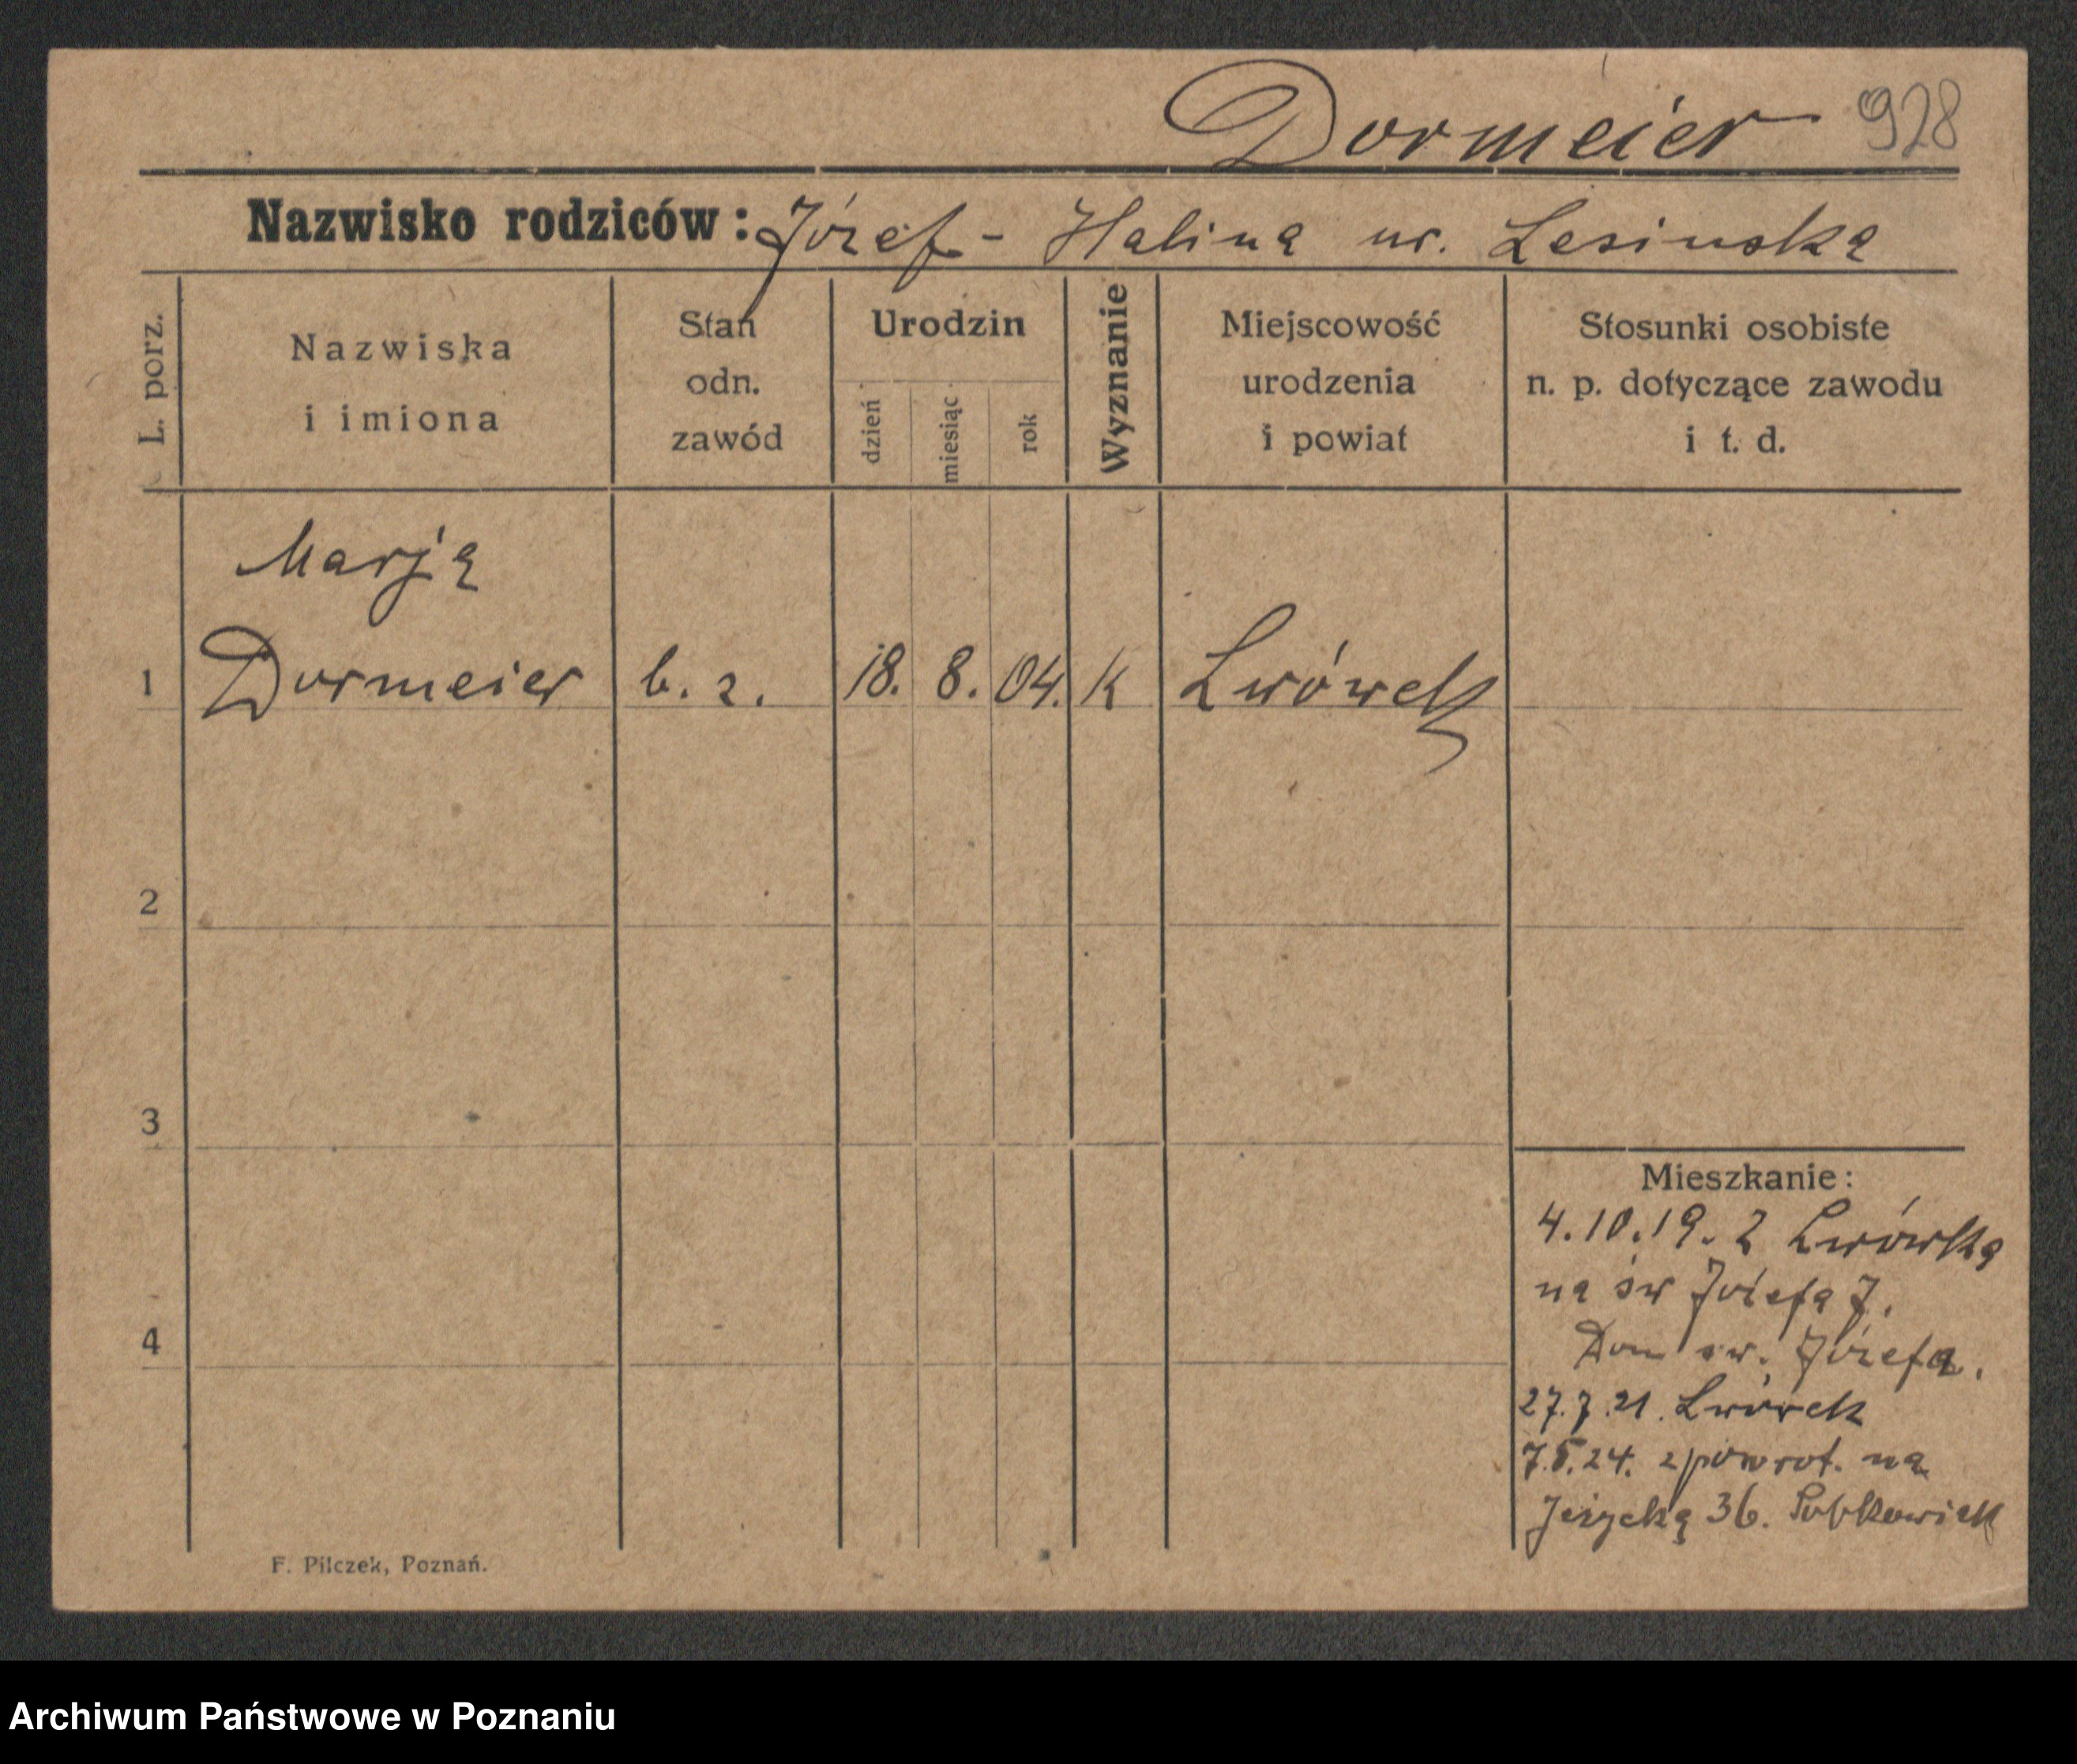 Dormeier 928
Nazwisko rodziców: Józef - Halina ur. Lesinska
L. porz.
Nazwiska
i imiona
Stan
odn.
zawód
Urodzin
dzień
miesiąc
rok
Wyznanie
Miejscowość
urodzenia
i powiat
Stosunki osobiste
n. p. dotyczące zawodu
i t. d.
Marja
1 Dormeier b. z. 18. 8. 04. K Lwówek
2
3
4
Mieszkanie:
4.10.19. z Lwówka
na św Józefa 7.
Dom św. Józefa.
27.7.21. Lwówek
7.5.24. zpowrot. na
Jeżycką 36.
F. Pilczek, Poznań.
Archiwum Państwowe w Poznaniu